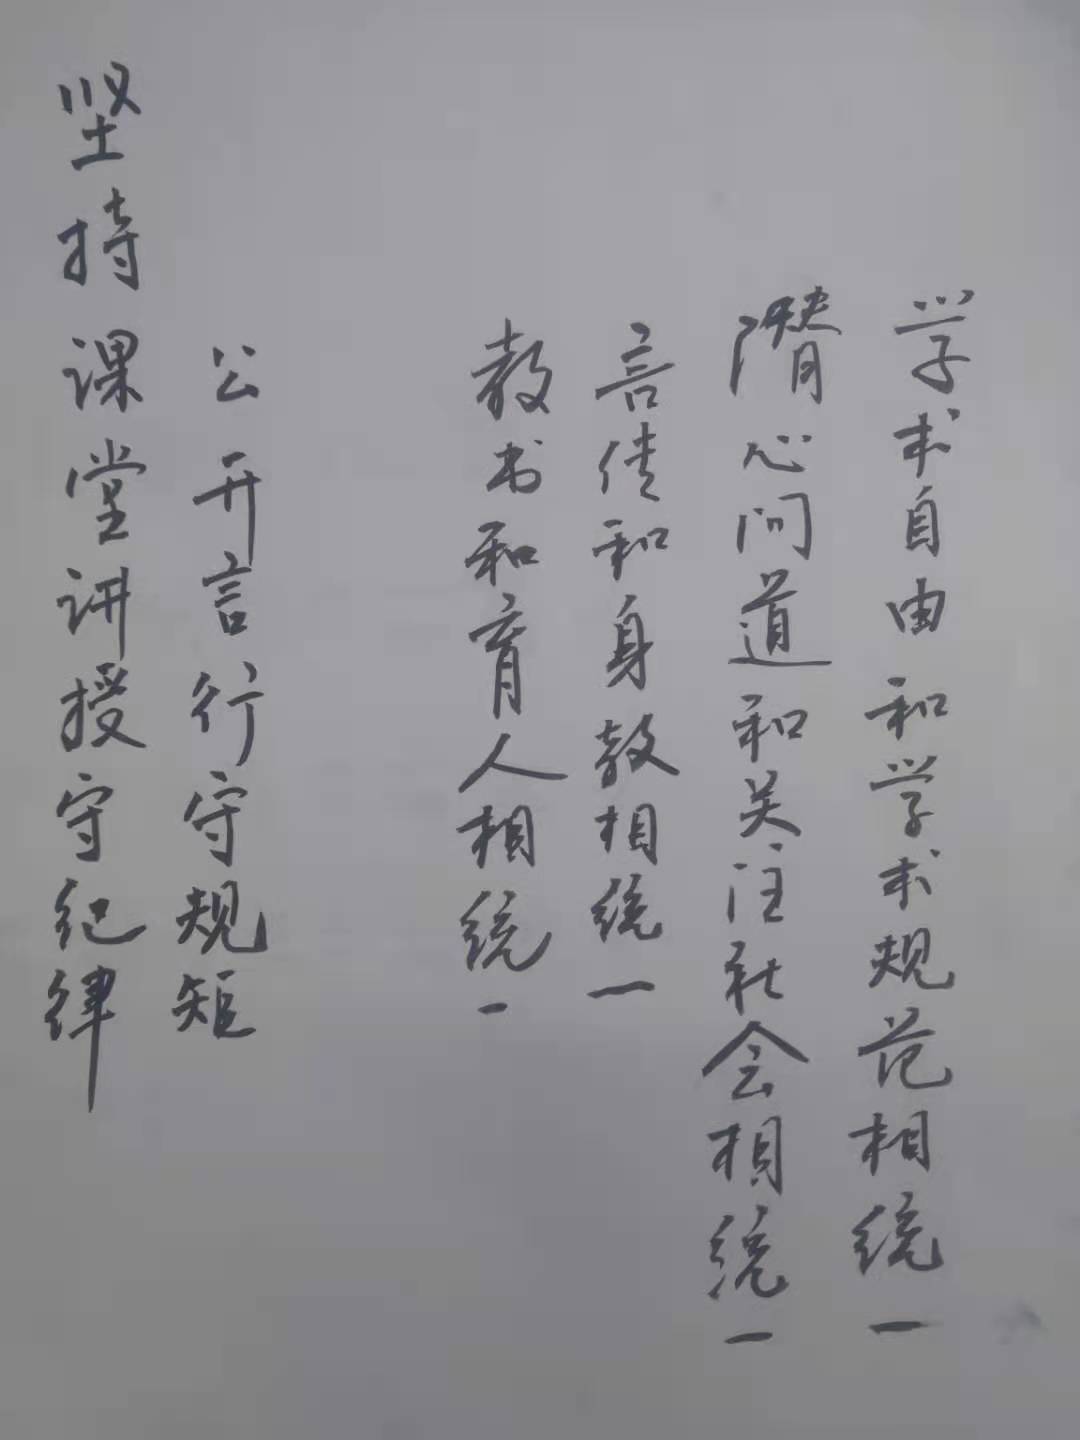 坚持课堂讲授守纪律
公开言行守规矩
教书和育人相统一
言传和身教相统一
潜心问道和关注社会相统一
学术自由和学术规范相统一